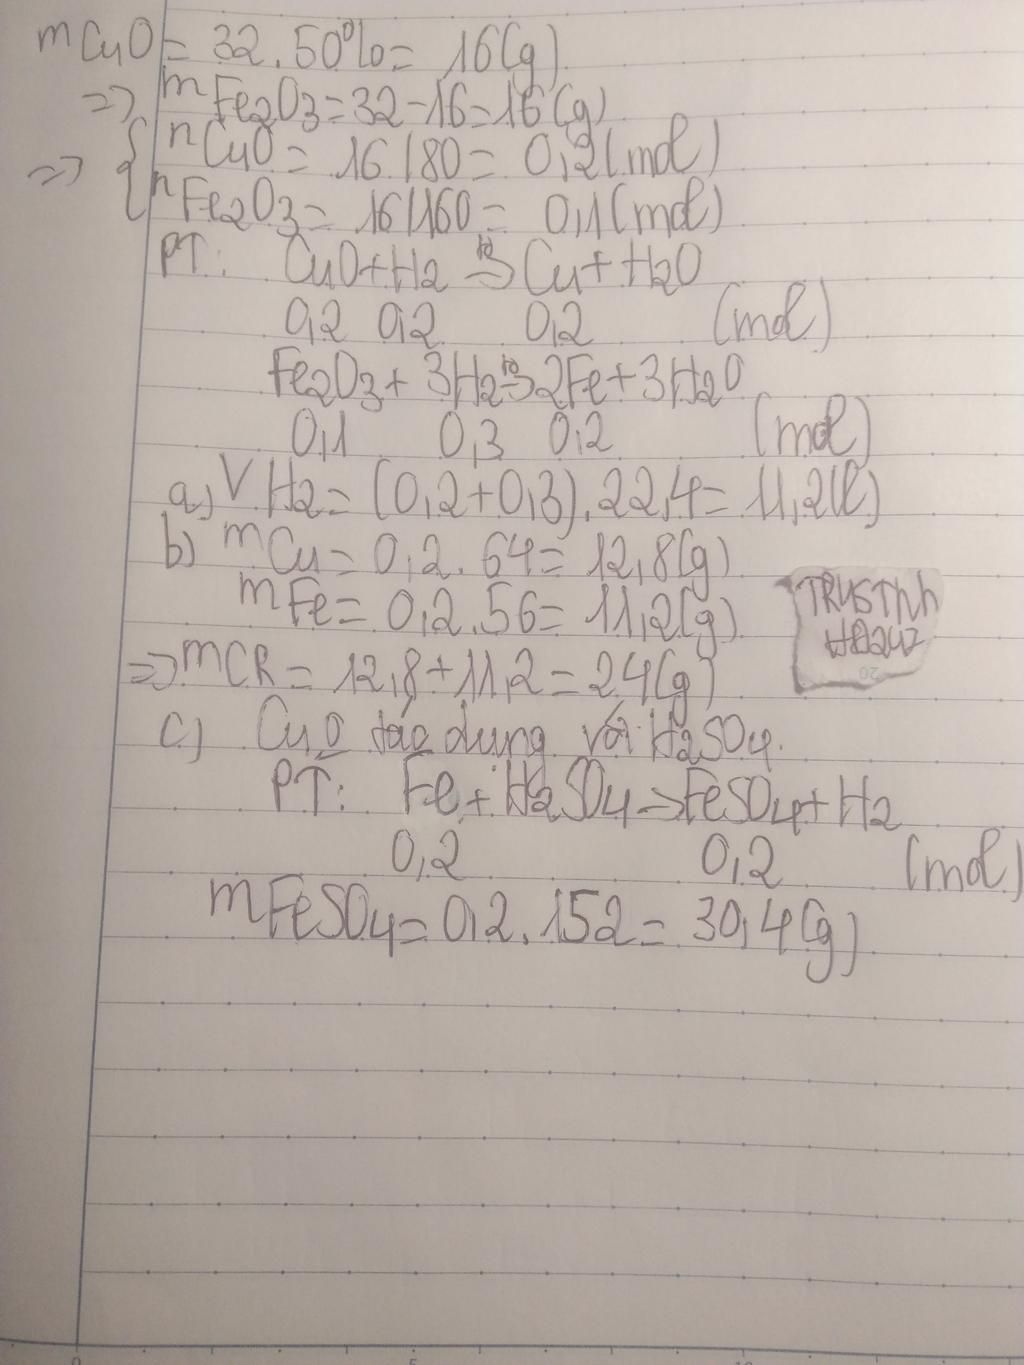 mCuO = 32.50% = 16(g)
=> mFe2O3 = 32-16 = 16(g)
=> { nCuO = 16/80 = 0,2(mol)
nFe2O3 = 16/160 = 0,1(mol)
PT: CuO + H2 -to-> Cu + H2O
0,2 0,2 0,2 (mol)
Fe2O3 + 3H2 -to-> 2Fe + 3H2O
0,1 0,3 0,2 (mol)
a) VH2 = (0,2+0,3).22,4 = 11,2(l)
b) mCu = 0,2.64 = 12,8(g)
mFe = 0,2.56 = 11,2(g)
=> mCR = 12,8 + 11,2 = 24(g)
c) CuO tác dụng với H2SO4.
PT: Fe + H2SO4 -> FeSO4 + H2
0,2 0,2 (mol)
mFeSO4 = 0,2.152 = 30,4(g)
20
0 5 10